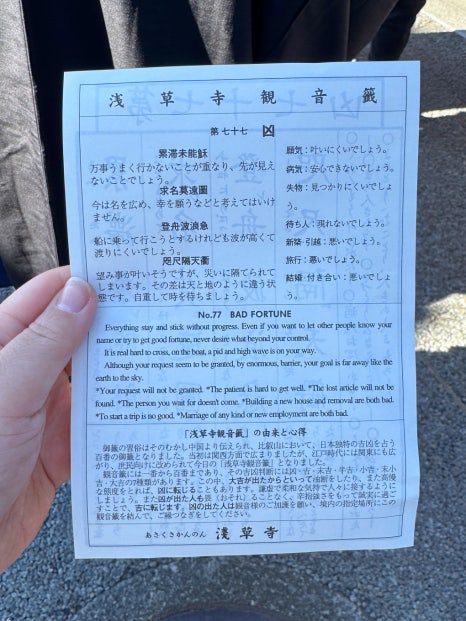 浅草寺観音籤
第七十七 凶
累滞未能穌
万事うまく行かないことが重なり、先が見え
ないことでしょう。
求名莫遠圖
今は名を広め、幸を願うなどと考えてはいけ
ません。
登舟波浪急
船に乗って行こうとするけれども波が高くて
渡りにくいでしょう。
咫尺隔天衢
望み事が叶いそうですが、災いに隔てられて
しまいます。その差は天と地のように違う状
態です。自重して時を待ちましょう。
願気:叶いにくいでしょう。
病気:安心できないでしょう。
失物:見つかりにくいでしょ
う。
待ち人:現れないでしょう。
新築・引越:悪いでしょう。
旅行:悪いでしょう。
結婚・付き合い:悪いでしょ
う。
No.77 BAD FORTUNE
Everything stay and stick without progress. Even if you want to let other people know your
name or try to get good fortune, never desire what beyond your control.
It is real hard to cross, on the boat, a pid and high wave is on your way.
Although your request seem to be granted, by enormous, barrier, your goal is far away like the
earth to the sky.
*Your request will not be granted. *The patient is hard to get well. *The lost article will not be
found. *The person you wait for doesn't come. *Building a new house and removal are both bad.
*To start a trip is no good. *Marriage of any kind or new employment are both bad.
「浅草寺観音籤」の由来と心得
御籤の習俗はそのむかし中国より伝えられ、比叡山において、日本独特の吉凶を占う
百番の御籤となりました。当初は関西方面で広まりましたが、江戸時代には関東にも広
がり、庶民向けに改められて今日の「浅草寺観音籤」となりました。
観音籤には一番から百番まであり、その吉凶判断には凶・吉・末吉・半吉・小吉・末小
吉・大吉の7種類があります。この中、大吉が出たからといって油断をしたり、また高慢
な態度をとれば、凶に転じることもあります。謙虚で柔和な気持で人々に接するようにし
ましょう。また凶が出た人も畏(おそ)れることなく、辛抱強さをもって誠実に過ご
すことで、吉に転じます。凶の出た人は観音様のご加護を願い、境内の指定場所にこの
観音籤を結んで、ご縁つなぎをしてください。
あさくさかんのん 淺草寺